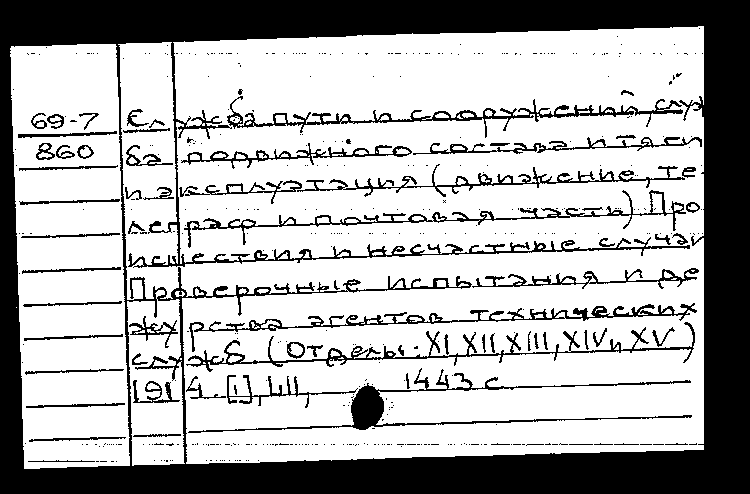 69-7 Служба пути и сооружений, служ
860 ба подвижного состава и тяги
и эксплуатация (движение, те-
леграф и почтовая часть) Про
исшествия и несчастные случаи
Проверочные испытания и де
журства агентов технических
служб. (Отделы: XI, XII, XIII, XIV и XV)
1914. [1], LII, 1443 с.